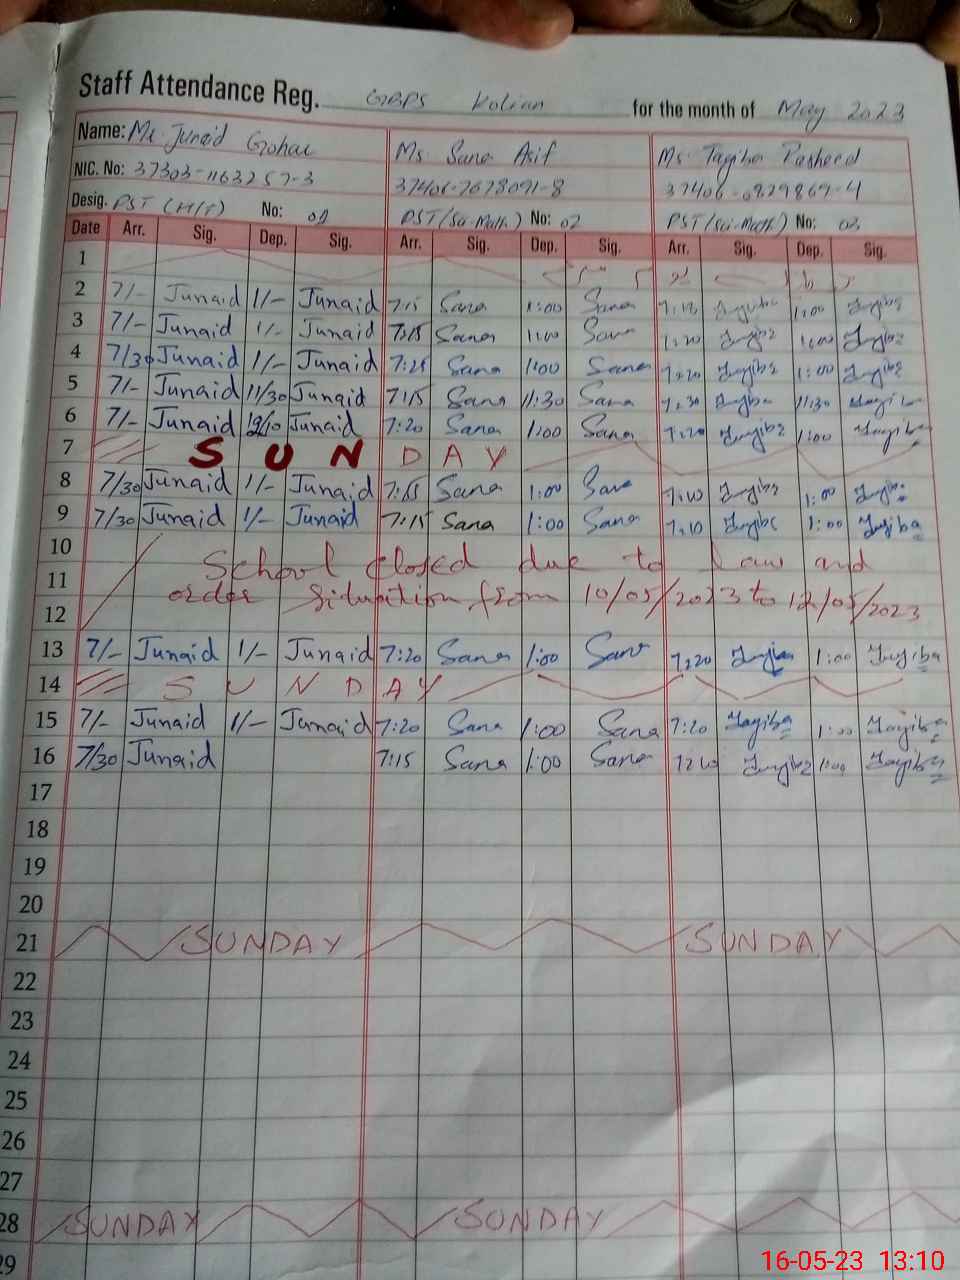 Staff Attendance Reg. GBPS Kolian for the month of May 2023
Name: Mr Junaid Gohar Ms. Sana Asif Ms. Tayiba Rasheed
NIC. No: 37303-1163257-3 37406-7678091-8 37406-0829869-4
Desig. PST (H/T) No: 01 PST (Sci-Math) No: 02 PST (Sci-Math) No: 03
Date Arr. Sig. Dep. Sig. Arr. Sig. Dep. Sig. Arr. Sig. Dep. Sig.
1
2 7/- Junaid 1/- Junaid 7:15 Sana 1:00 Sana Tayiba 1:00 Tayiba
3 7/- Junaid 1/- Junaid 7:15 Sana 1:00 Sana 7:20 Tayiba 1:00 Tayiba
4 7/30 Junaid 1/- Junaid 7:25 Sana 1:00 Sana 7:20 Tayiba 1:00 Tayiba
5 7/- Junaid 11/30 Junaid 7:15 Sana 11:30 Sana 7:30 Tayiba 11:30 Tayiba
6 7/- Junaid Junaid 7:20 Sana 1:00 Sana 7:20 Tayiba 1:00 Tayiba
7 S U N D A Y
8 7/30 Junaid 1/- Junaid 7:15 Sana 1:00 Sana 7:10 Tayiba 1:00 Tayiba
9 7/30 Junaid 1/- Junaid 7:15 Sana 1:00 Sana 7:10 Tayiba 1:00 Tayiba
10 School closed due to Law and
11 order Situation from 10/05/2023 to 12/05/2023
12
13 7/- Junaid 1/- Junaid 7:20 Sana 1:00 Sana 7:20 Tayiba 1:00 Tayiba
14 S U N D A Y
15 7/- Junaid 1/- Junaid 7:20 Sana 1:00 Sana 7:20 Tayiba 1:00 Tayiba
16 7/30 Junaid 7:15 Sana 1:00 Sana Tayiba 1:00 Tayiba
17
18
19
20
21 SUNDAY SUNDAY
22
23
24
25
26
27
28 SUNDAY SUNDAY
29
16-05-23 13:10